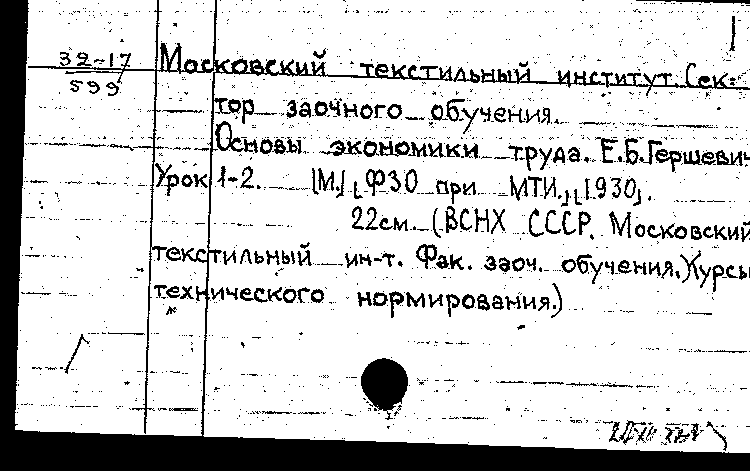 32-17
599
Московский текстильный институт. Сек-
тор заочного обучения.
Основы экономики труда. Е.Б. Гершевич
Урок 1-2. [М.], [ФЗО при МТИ.], [1930].
22см. (ВСНХ СССР. Московский
текстильный ин-т. Фак. заоч. обучения. Курсы
технического нормирования.)